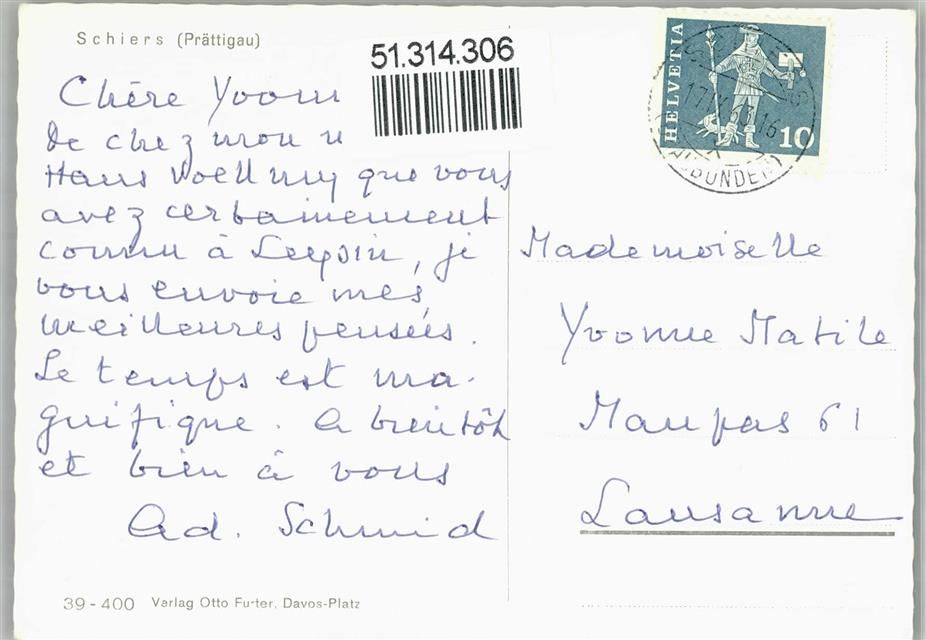 Schiers (Prättigau)
51.314.306
Chère Yvonn
de chez mon
Hans Voellmy que vous
avez certainement
connu à Leysin, je
vous envoie mes
meilleures pensées.
Le temps est ma-
gnifique. A bientôt
et bien à vous
Ad. Schmid
39-400 Verlag Otto Furter, Davos-Platz
HELVETIA
10
Mademoiselle
Yvonne Matile
Maupas 61
Lausanne